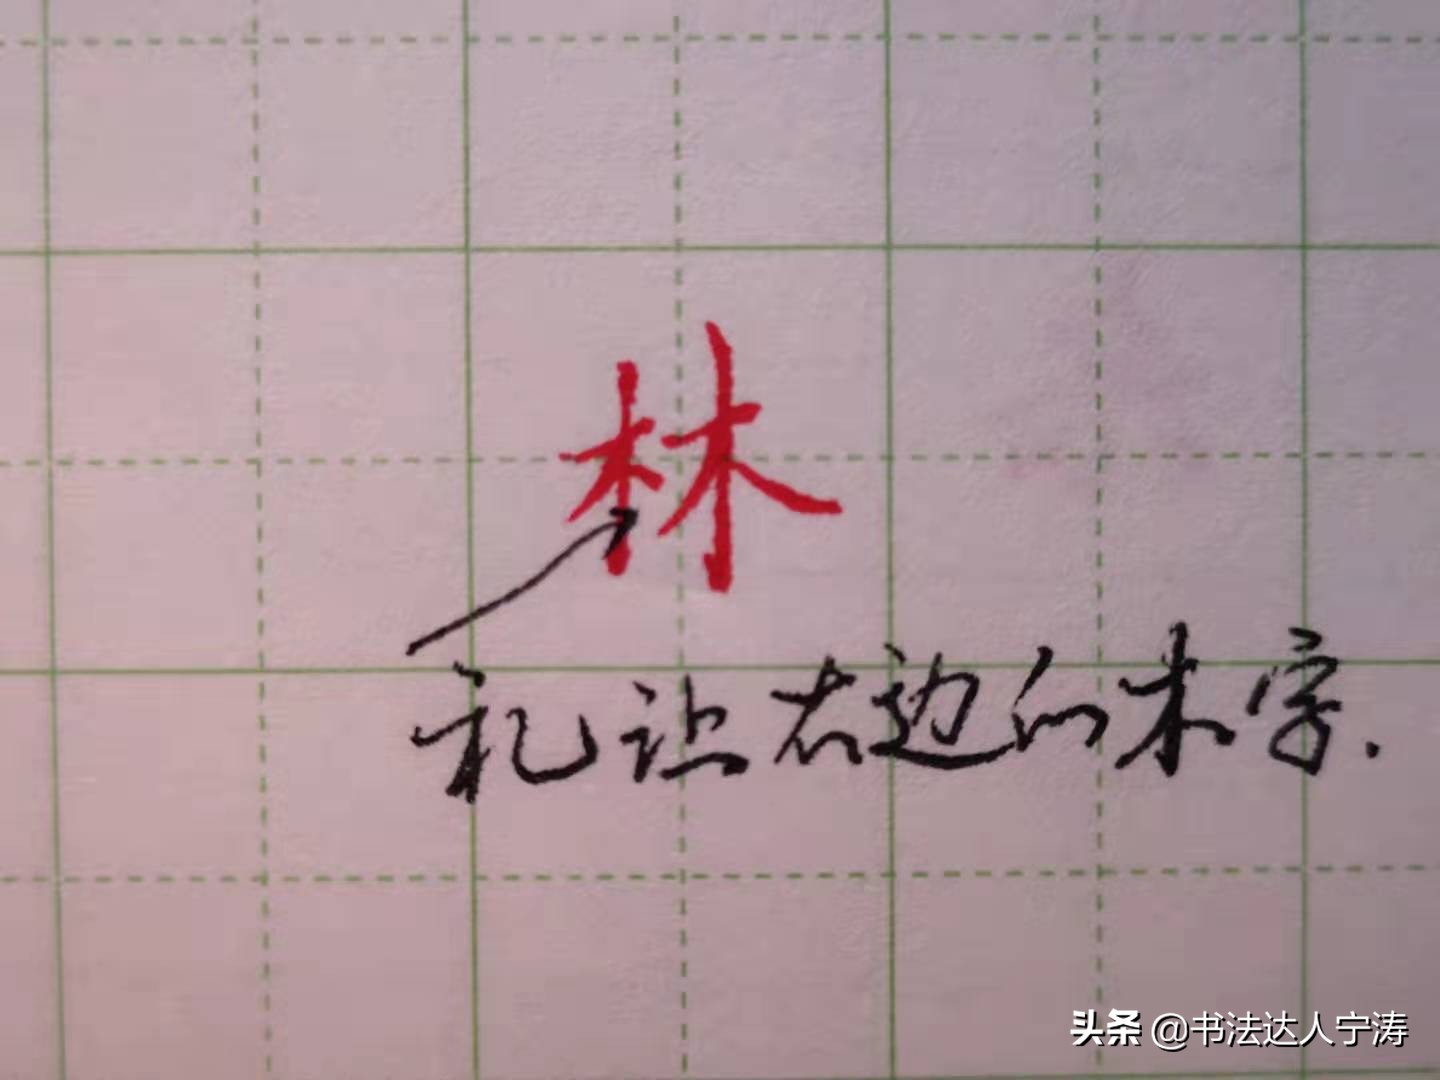 林
礼让右边的木字.
头条 @书法达人宁涛